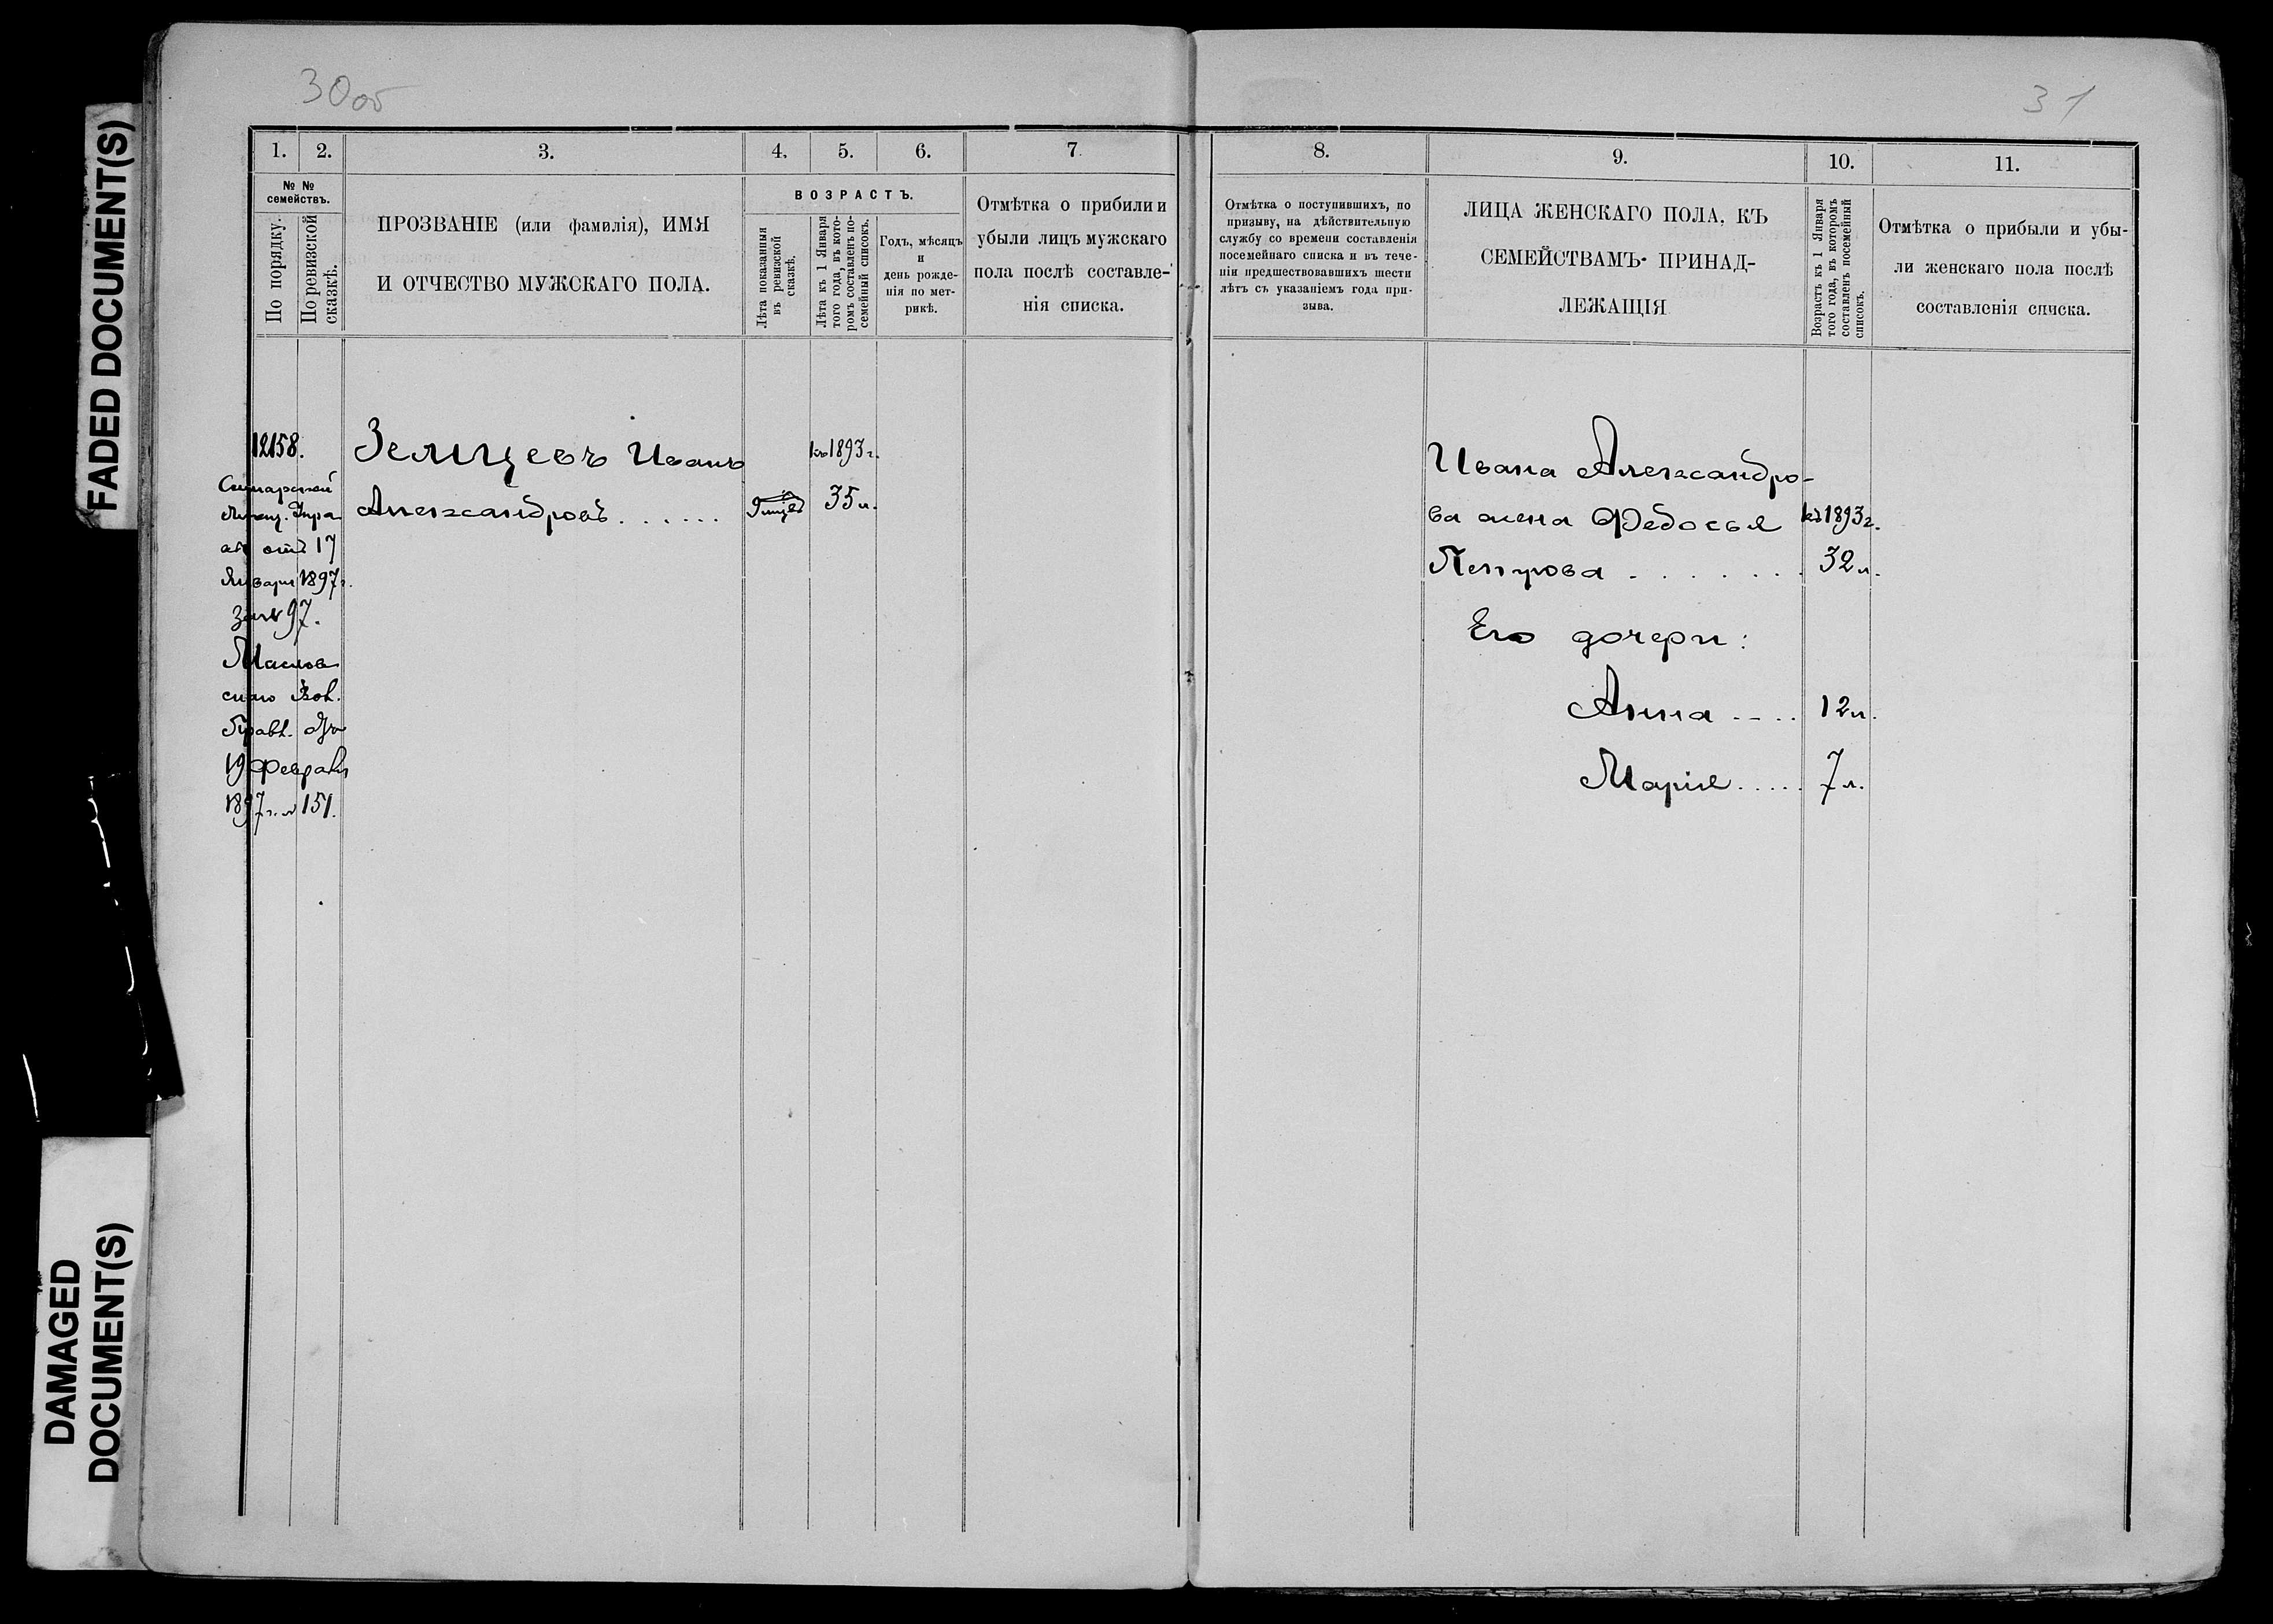 30об
31
FADED DOCUMENT(S)
DAMAGED
DOCUMENT(S)
1.
2.
3.
4.
5.
6.
7.
№ №
семействъ.
По порядку.
По ревизской
сказкѣ.
ПРОЗВАНІЕ (или фамилія), ИМЯ
И ОТЧЕСТВО МУЖСКАГО ПОЛА.
ВОЗРАСТЪ.
Лѣта показанныя
въ ревизской
сказкѣ.
Лѣта къ 1 Января
того года, въ кото-
ромъ составленъ по-
семейный списокъ.
Годъ, мѣсяцъ
и
день рожде-
нія по мет-
рикѣ.
Отмѣтка о прибыли и
убыли лицъ мужскаго
пола послѣ составле-
нія списка.
12158.
Зелицевъ Иванъ
къ 1893 г.
Александровъ . . . . . .
35 л.
Самарской
от 17
Января 1897 г.
за № 97.
19 Февраля
1897 г. № 151.
8.
9.
10.
11.
Отмѣтка о поступившихъ, по
призыву, на дѣйствительную
службу со времени составленія
посемейнаго списка и въ тече-
ніи предшествовавшихъ шести
лѣтъ съ указаніемъ года при-
зыва.
ЛИЦА ЖЕНСКАГО ПОЛА, КЪ
СЕМЕЙСТВАМЪ ПРИНАД-
ЛЕЖАЩІЯ
Возрастъ къ 1 Января
того года, въ которомъ
составленъ посемейный
списокъ.
Отмѣтка о прибыли и убы-
ли женскаго пола послѣ
составленія списка.
Ивана Александро-
ва жена Федосья къ 1893 г.
Петрова . . . . . . . 32 л.
Его дочери:
Анна . . . . 12 л.
Марія . . . . . 7 л.